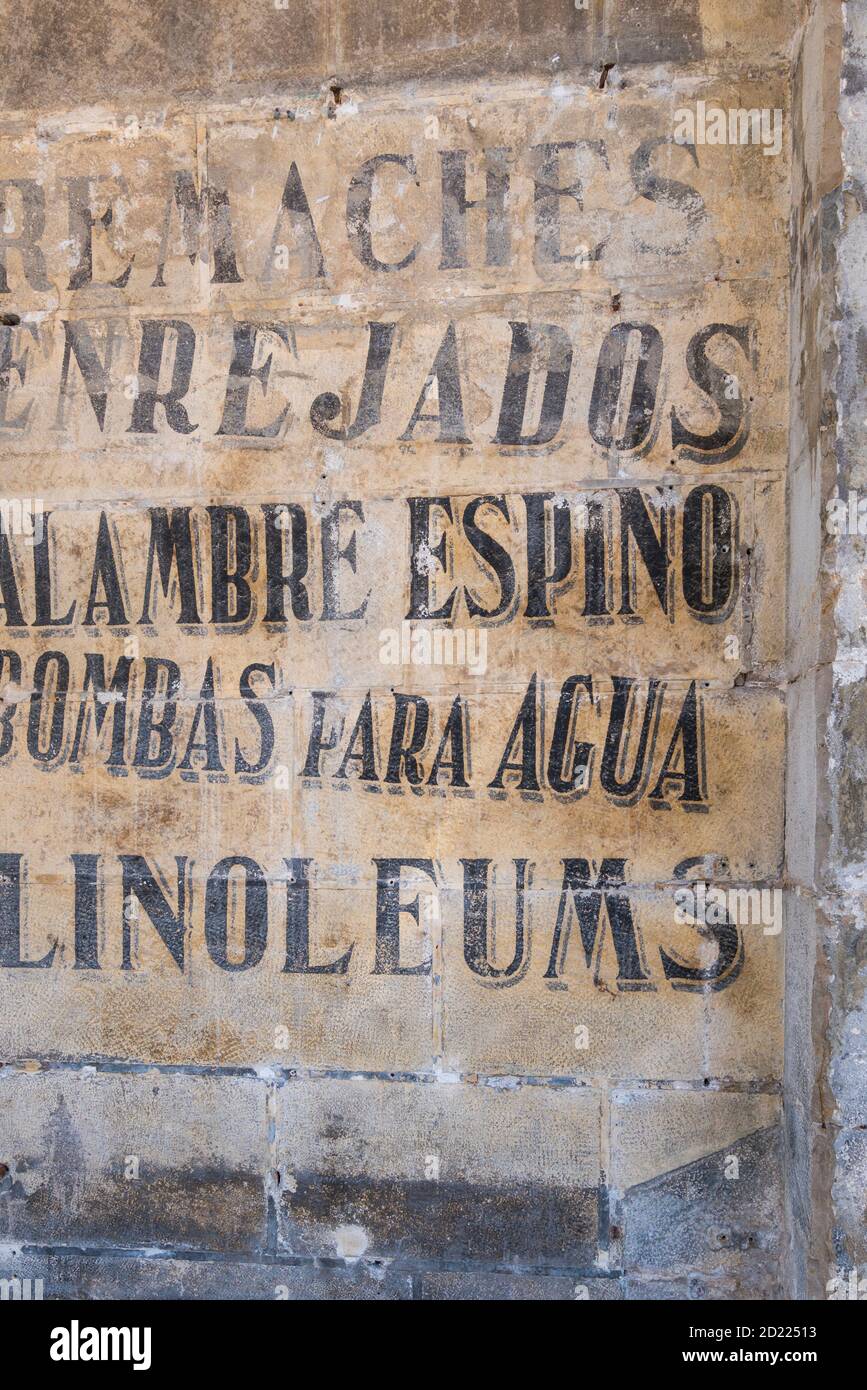 REMACHES
ENREJADOS
ALAMBRE ESPINO
BOMBAS PARA AGUA
LINOLEUMS
alamy
Image ID: 2D22513
www.alamy.com